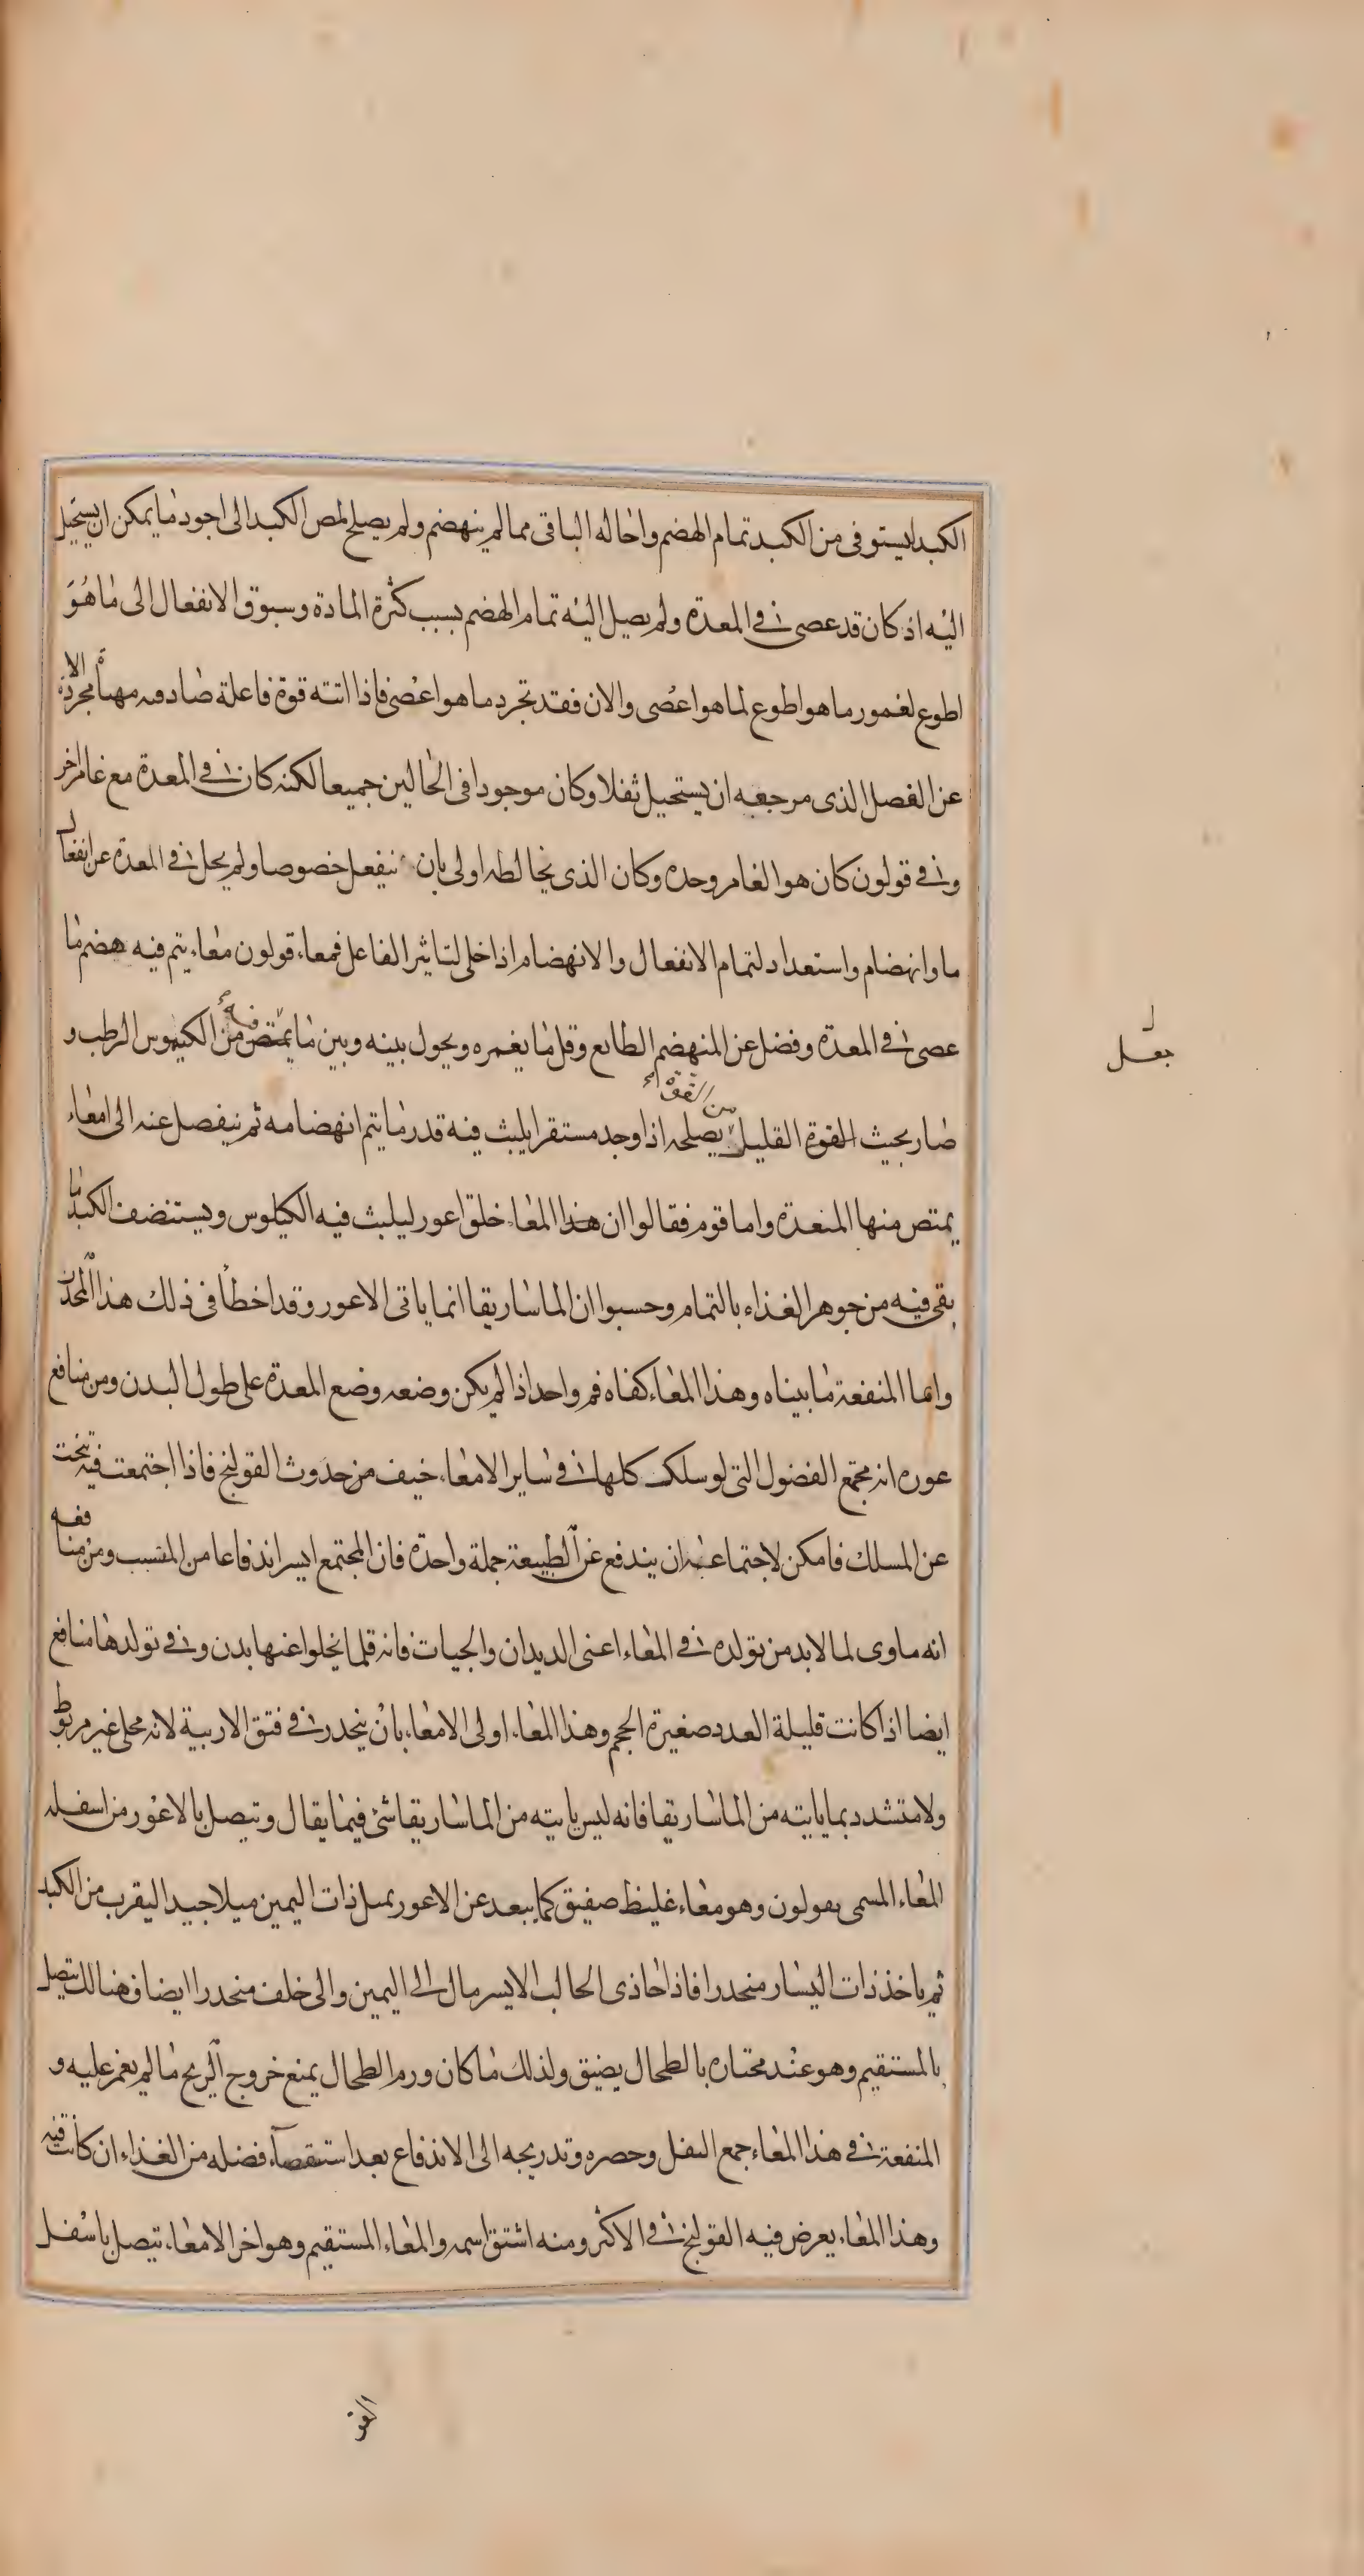 الكبد ليستوفى من الكبد تمام الهضم واحاله الباقى مما لم ينهضم ولم يصلح لمص الكبد الى اجود ما يمكن ان يستحيل
اليه اذ كان قد عصى فى المعدة ولم يصل اليه تمام الهضم بسبب كثرة المادة وسبوق الانفعال الى ما هو
اطوع لغمور ما هو اطوع لما هو اعصى والان فقد تجرد ما هو اعصى فاذا اتته قوة فاعلة صادفه مهيأ مجردة الا
عن الفصل الذى مرجعه ان يستحيل ثفلا وكان موجودا فى الحالين جميعا لكنه كان فى المعدة مع غامر اخر
وفى قولون كان هو الغامر وحده وكان الذى يخالطه اولى بان ينفعل خصوصا ولم يخل فى المعدة عن انفعال
ما وانهضام واستعداد لتمام الانفعال والانهضام اذا خلى لتاثير الفاعل فمعاء قولون معاء يتم فيه هضم ما
عصى فى المعدة وفضل عن المنهضم الطايع وقل ما يغمره ويحول بينه وبين ما يمتص فيه من الكيموس الرطب و
صار بحيث القوة القليل من القوة يصلحه اذا وجد مستقرا يلبث فيه قدر ما يتم انهضامه ثم ينفصل عنه الى امعاء
يمتص منها المنعدة واما قوم فقالوا ان هذا المعاء خلق اعور ليلبث فيه الكيلوس ويستنضف الكبد ما
بقى فيه من جوهر الغذاء بالتمام وحسبوا ان الماساريقا انما ياتى الاعور وقد اخطأ فى ذلك هذا المحدث
وانما المنفعة ما بيناه وهذا المعاء كفاه فم واحد اذا لم يكن وضعه وضع المعدة على طول البدن ومن منافع
عوره انه مجتمع الفضول التى لو سلك كلها فى ساير الامعاء خيف من حدوث القولنج فاذا اجتمعت فيه تنحت
عن المسلك فامكن لاجتماعها ان يندفع عن الطبيعة جملة واحدة فان المجتمع ايسر اندفاعا من المتسبب ومن منافعه
انه ماوى لما لابد من تولده فى المعاء اعنى الديدان والحيات فانه قلما يخلوا عنها بدن وفى تولدها منافع
ايضا اذا كانت قليلة العدد صغيرة الحجم وهذا المعاء اولى الامعاء بان ينحدر فى فتق الاربية لانه محلى غير مربوط
ولا متشدد بما ياتيه من الماساريقا فانه ليس ياتيه من الماساريقا شئ فيما يقال ويتصل بالاعور من اسفله
المعاء المسمى بقولون وهو معاء غليظ صفيق كما يبعد عن الاعور يميل ذات اليمين ميلا جيدا ليقرب من الكبد
ثم ياخذ ذات اليسار منحدرا فاذا حاذى الحالب الايسر مال الى اليمين والى خلف منحدرا ايضا فهنالك يتصل
بالمستقيم وهو عند مجتازه بالطحال يضيق ولذلك ما كان ورم الطحال يمنع خروج الريح ما لم يغمز عليه و
المنفعة فى هذا المعاء جمع الثفل وحصره وتدريجه الى الاندفاع بعد استقصاء فضله من الغذاء ان كانت فيه
وهذا المعاء يعرض فيه القولنج فى الاكثر ومنه اشتق اسمه والمعاء المستقيم وهو اخر الامعاء يتصل باسفل